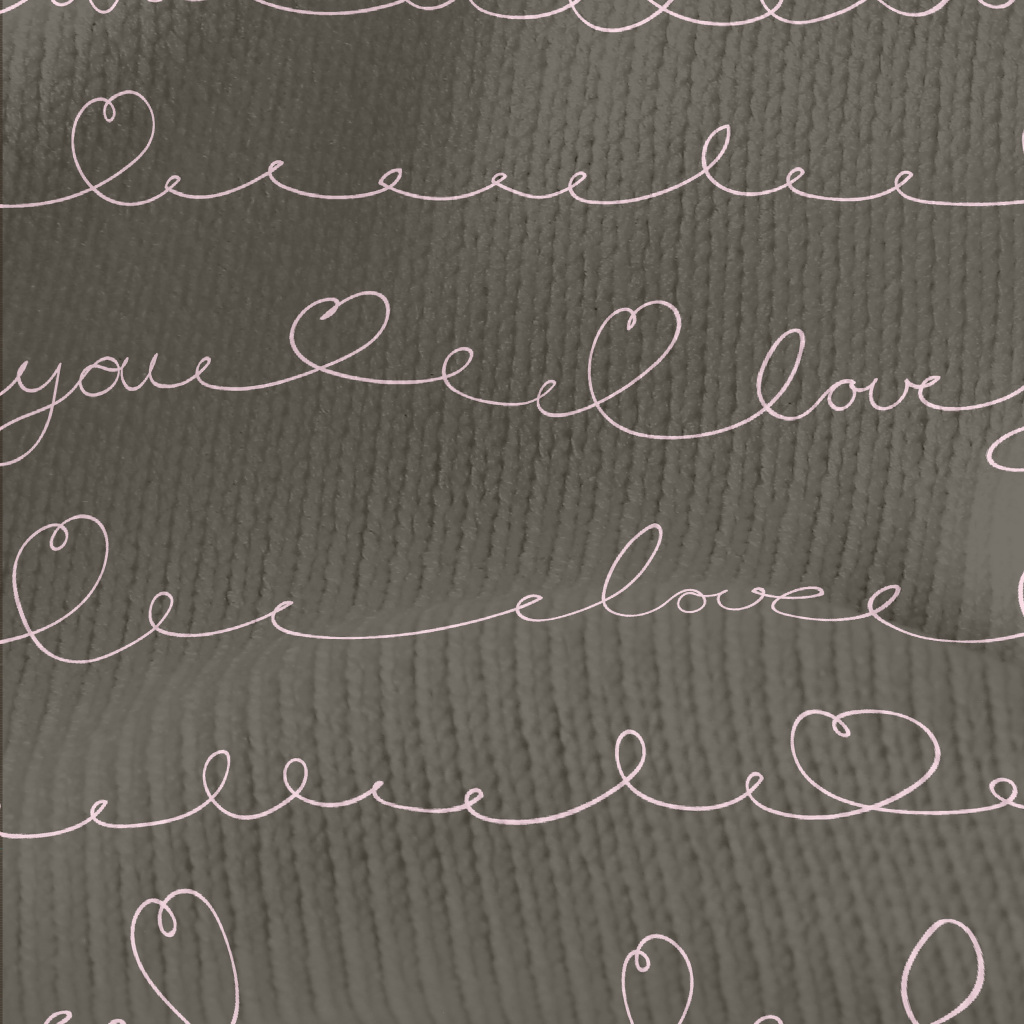 you love
love